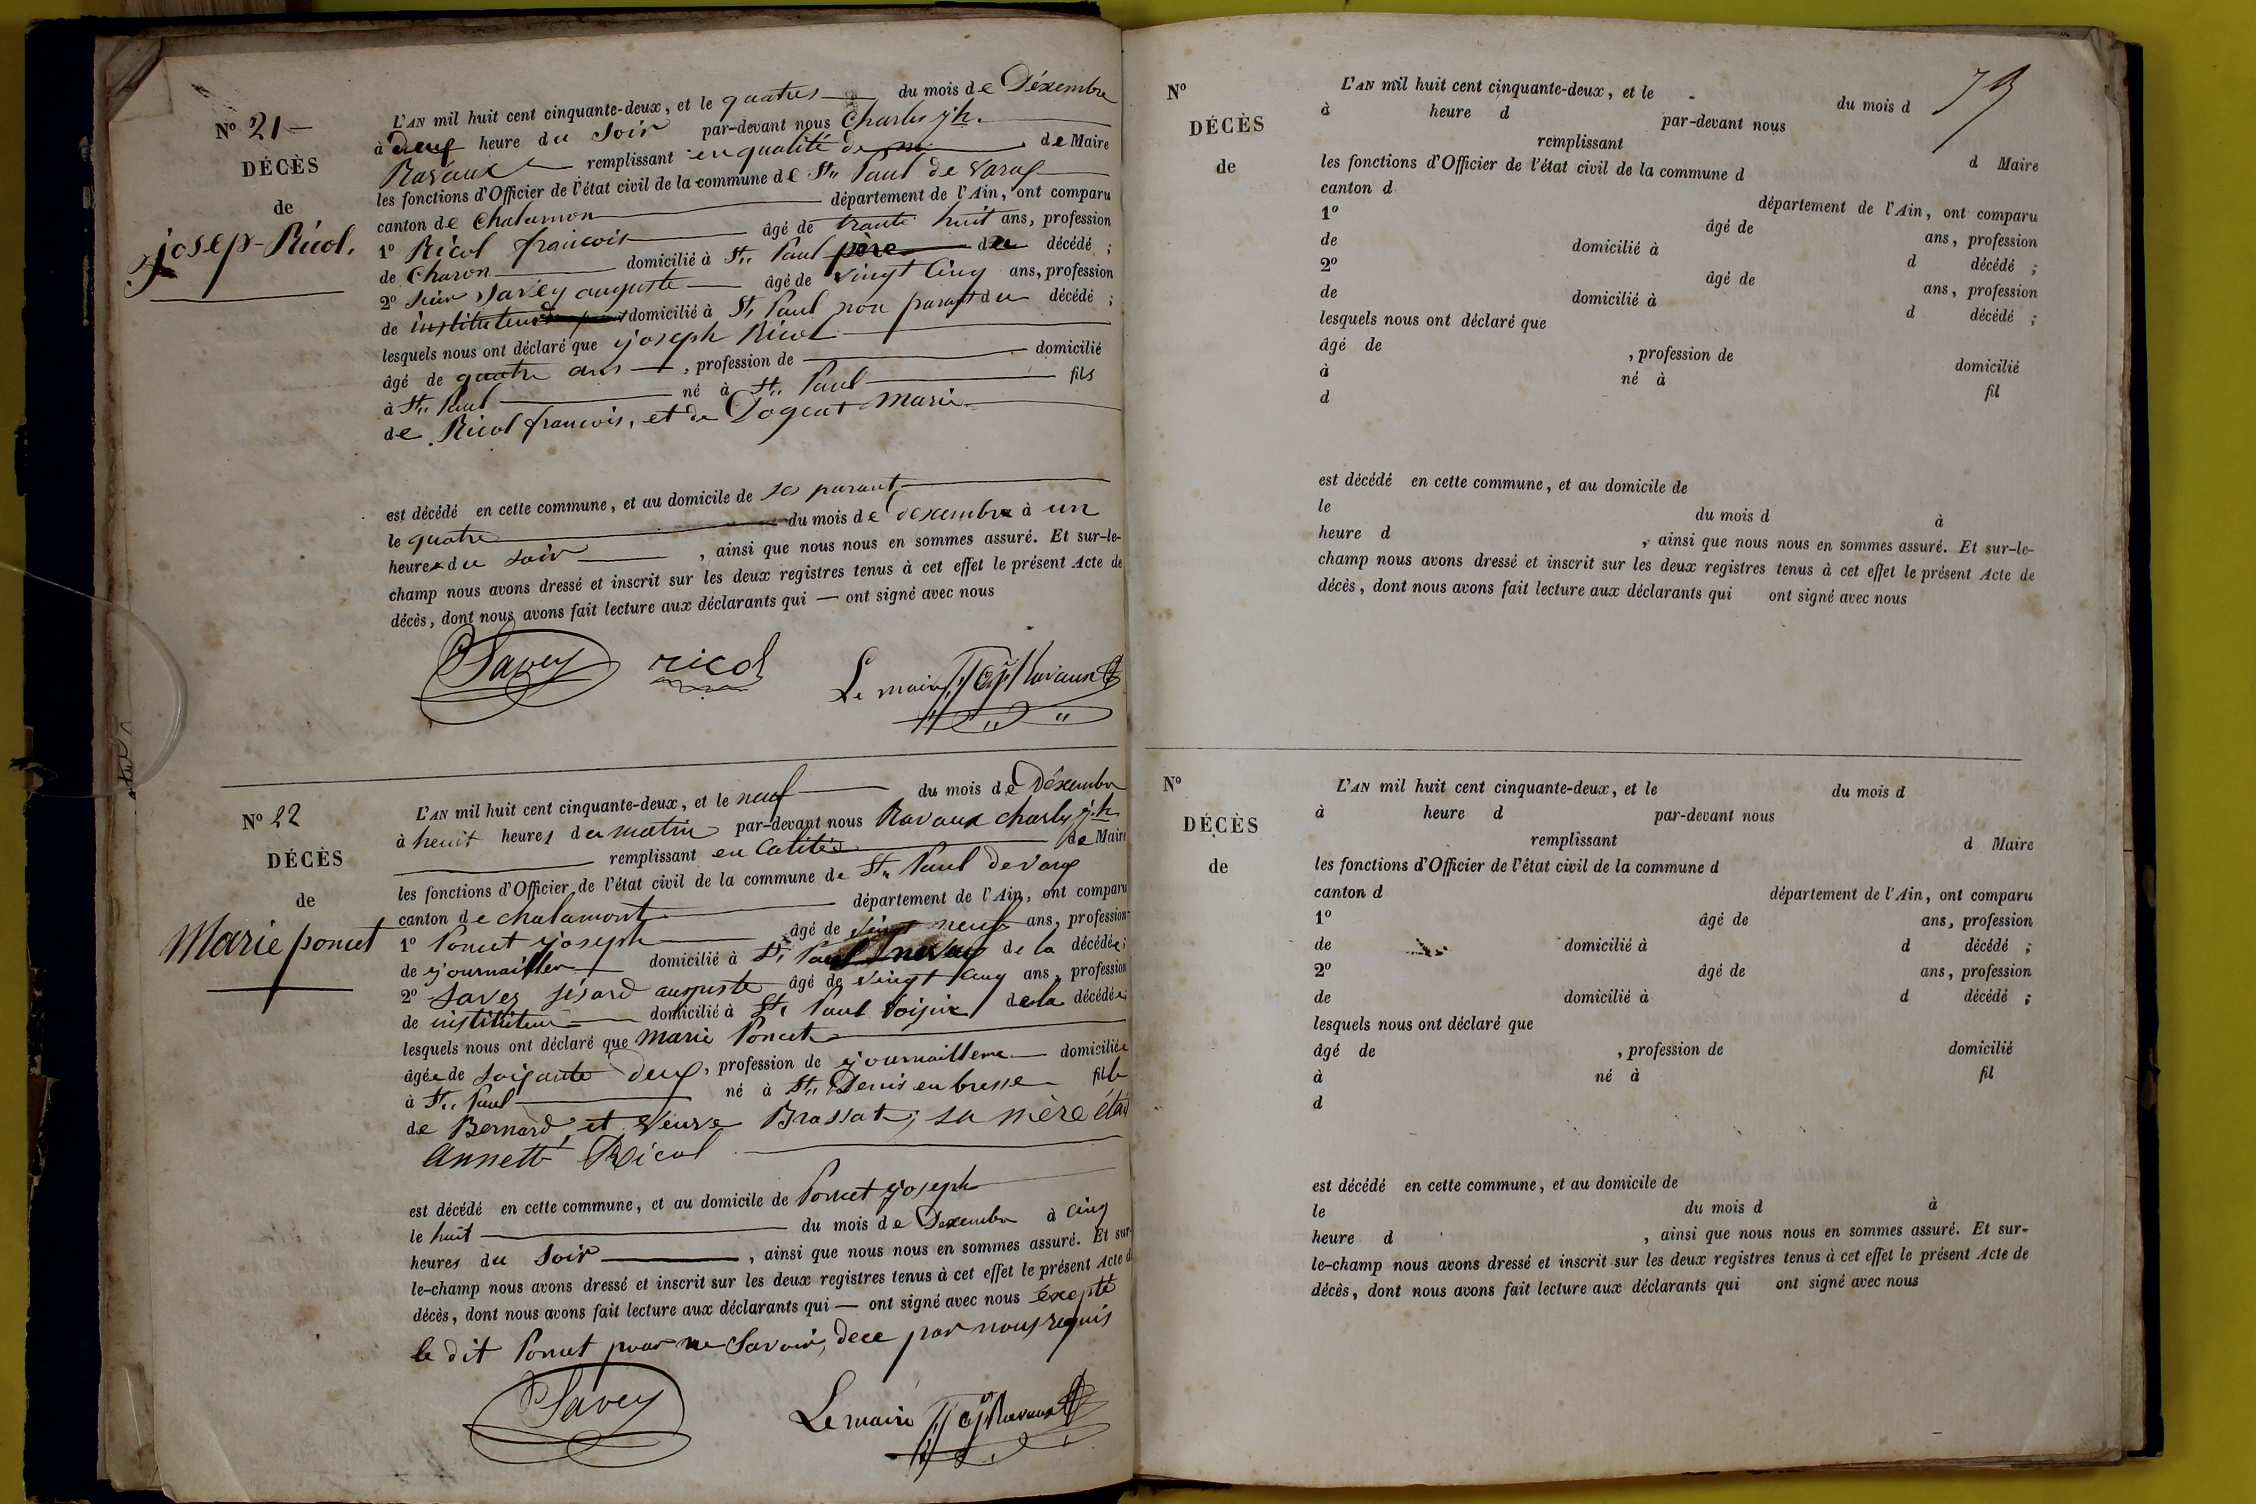 N° 21
DÉCÈS
de
josep-Ricol.
L'AN mil huit cent cinquante-deux, et le quatres du mois de Déxembre
à deux heure du soir par-devant nous Charles jh.
Ravaux remplissant en qualité de Maire
les fonctions d'Officier de l'état civil de la commune de St,, Paul de varax
canton de Chalamon département de l'Ain, ont comparu
1° Ricol francois âgé de trante huit ans, profession
de Charon domicilié à St,, Paul père du décédé ;
2° savey auguste âgé de vingt Cinq ans, profession
de instituteur domicilié à St, Paul non parant du décédé ;
lesquels nous ont déclaré que joseph Ricol
âgé de quatre ans, profession de domicilié
à St,, Paul né à St,, Paul fils
de Ricol francois, et de Marie
est décédé en cette commune, et au domicile de ses parant
le quatre du mois de dexembre à un
heure du soir, ainsi que nous nous en sommes assuré. Et sur-le-
champ nous avons dressé et inscrit sur les deux registres tenus à cet effet le présent Acte de
décès, dont nous avons fait lecture aux déclarants qui — ont signé avec nous
Savey ricol Le maire Ravaux
N° 22
DÉCÈS
de
Marie poncet
L'AN mil huit cent cinquante-deux, et le neuf du mois de Déxembre
à heuit heures du matin par-devant nous Ravaux charles jh
remplissant en Calité de Maire
les fonctions d'Officier de l'état civil de la commune de St,, Paul de varax
canton de chalamont département de l'Ain, ont comparu
1° Poncet joseph âgé de vingt neuf ans, profession
de journailler domicilié à St, Paul neveu de la décédée ;
2° Savey sésard auguste âgé de vingt cinq ans, profession
de instituteur domicilié à St, Paul Voisin de la décédée ;
lesquels nous ont déclaré que Marie Poncet
âgée de soixante deux, profession de journaillere domiciliée
à St,, Paul né à St,, Denis en bresse fille
de Bernard, et veuve Brassat, sa mère étai
annette Ricol
est décédé en cette commune, et au domicile de Poncet joseph
le huit du mois de Dexembre à cinq
heures du soir, ainsi que nous nous en sommes assuré. Et sur
le-champ nous avons dressé et inscrit sur les deux registres tenus à cet effet le présent Acte d
décès, dont nous avons fait lecture aux déclarants qui — ont signé avec nous éxepté
le dit Poncet pour ne savoir, dece par nous requis
Savey Le maire Ravaux
79
N°
DÉCÈS
de
L'AN mil huit cent cinquante-deux, et le du mois d
à heure d par-devant nous
remplissant d Maire
les fonctions d'Officier de l'état civil de la commune d
canton d département de l'Ain, ont comparu
1° âgé de ans, profession
de domicilié à d décédé ;
2° âgé de ans, profession
de domicilié à d décédé ;
lesquels nous ont déclaré que
âgé de , profession de domicilié
à né à fil
d
est décédé en cette commune, et au domicile de
le du mois d à
heure d , ainsi que nous nous en sommes assuré. Et sur-le-
champ nous avons dressé et inscrit sur les deux registres tenus à cet effet le présent Acte de
décès, dont nous avons fait lecture aux déclarants qui ont signé avec nous
N°
DÉCÈS
de
L'AN mil huit cent cinquante-deux, et le du mois d
à heure d par-devant nous
remplissant d Maire
les fonctions d'Officier de l'état civil de la commune d
canton d département de l'Ain, ont comparu
1° âgé de ans, profession
de domicilié à d décédé ;
2° âgé de ans, profession
de domicilié à d décédé ;
lesquels nous ont déclaré que
âgé de , profession de domicilié
à né à fil
d
est décédé en cette commune, et au domicile de
le du mois d à
heure d , ainsi que nous nous en sommes assuré. Et sur-
le-champ nous avons dressé et inscrit sur les deux registres tenus à cet effet le présent Acte de
décès, dont nous avons fait lecture aux déclarants qui ont signé avec nous